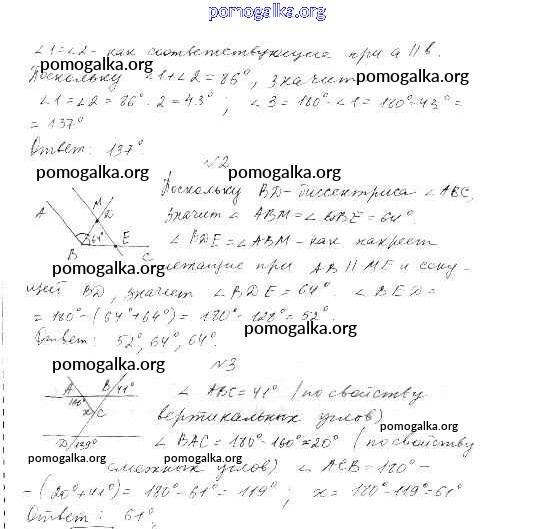 pomogalka.org
∠1=∠2 - как соответствующие при a || b.
Поскольку ∠1+∠2=86°, значит
pomogalka.org pomogalka.org
∠1=∠2=86°:2=43°; ∠3=180°-∠1=180°-43°=
=137°
Ответ: 137°.
№2
pomogalka.org pomogalka.org
Поскольку BD-биссектриса ∠ABC,
значит ∠ABM=∠DBE=64°
∠BDE=∠ABM - как накрест
A M D 64° E B C
pomogalka.org
лежащие при AB || ME и секу-
щей BD, значит ∠BDE=64°. ∠BED=
=180°-(64°+64°)=180°-128°=52°.
pomogalka.org
Ответ: 52°, 64°, 64°.
№3
pomogalka.org
∠ABC=41° (по свойству
вертикальных углов)
A B 41° 160° x C D 139°
pomogalka.org
∠BAC=180°-160°=20° (по свойству
pomogalka.org pomogalka.org
смежных углов) ∠ACB=180°-
-(20°+41°)=180°-61°=119°; x=180°-119°=61°
pomogalka.org pomogalka.org
Ответ: 61°.